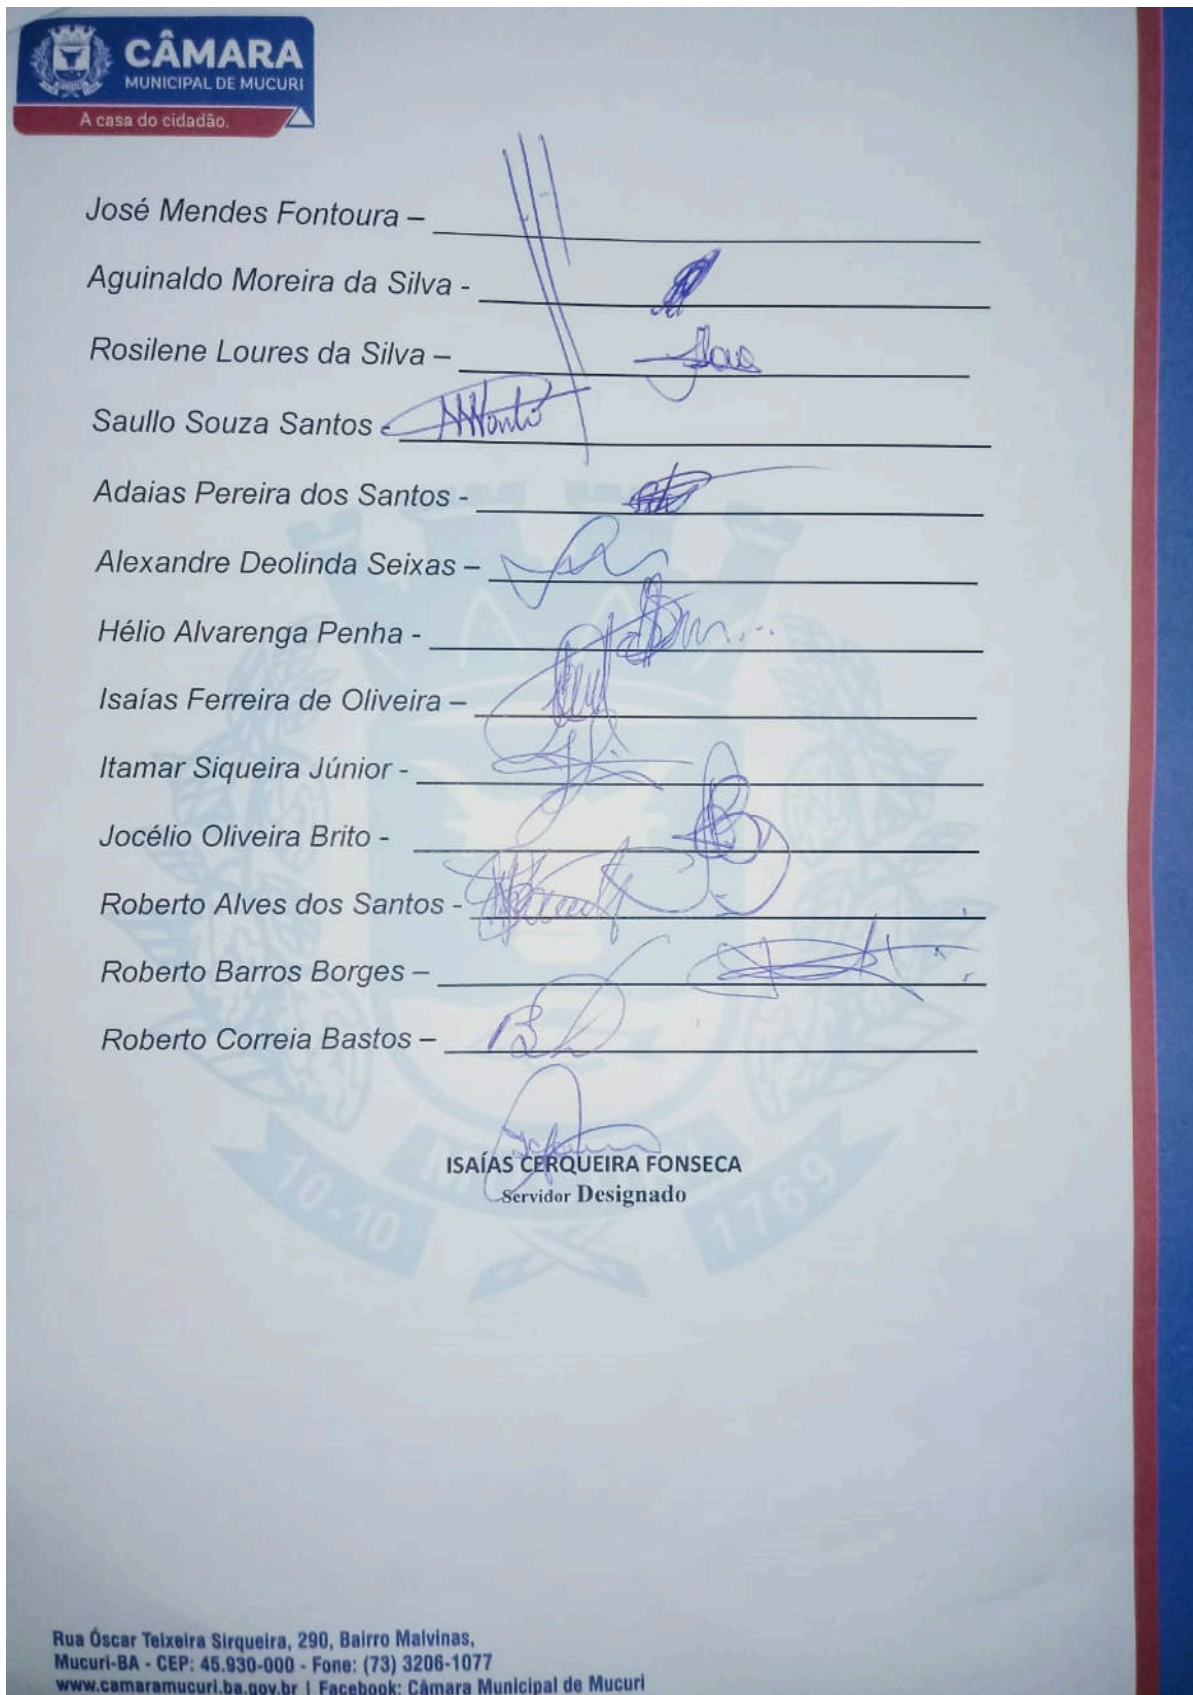 CÂMARA
MUNICIPAL DE MUCURI
A casa do cidadão.
José Mendes Fontoura –
Aguinaldo Moreira da Silva -
Rosilene Loures da Silva –
Saullo Souza Santos -
Adaias Pereira dos Santos -
Alexandre Deolinda Seixas –
Hélio Alvarenga Penha -
Isaías Ferreira de Oliveira –
Itamar Siqueira Júnior -
Jocélio Oliveira Brito -
Roberto Alves dos Santos -
Roberto Barros Borges –
Roberto Correia Bastos –
ISAÍAS CERQUEIRA FONSECA
Servidor Designado
10-10
1769
Rua Óscar Teixeira Sirqueira, 290, Bairro Malvinas,
Mucuri-BA - CEP: 45.930-000 - Fone: (73) 3206-1077
www.camaramucuri.ba.gov.br | Facebook: Câmara Municipal de Mucuri